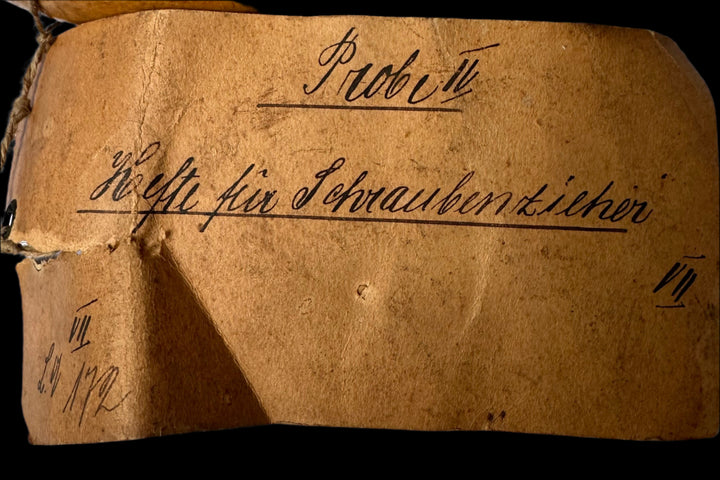 Probe II
Hefte für Schraubenzieher
VII
VII
L.g 172